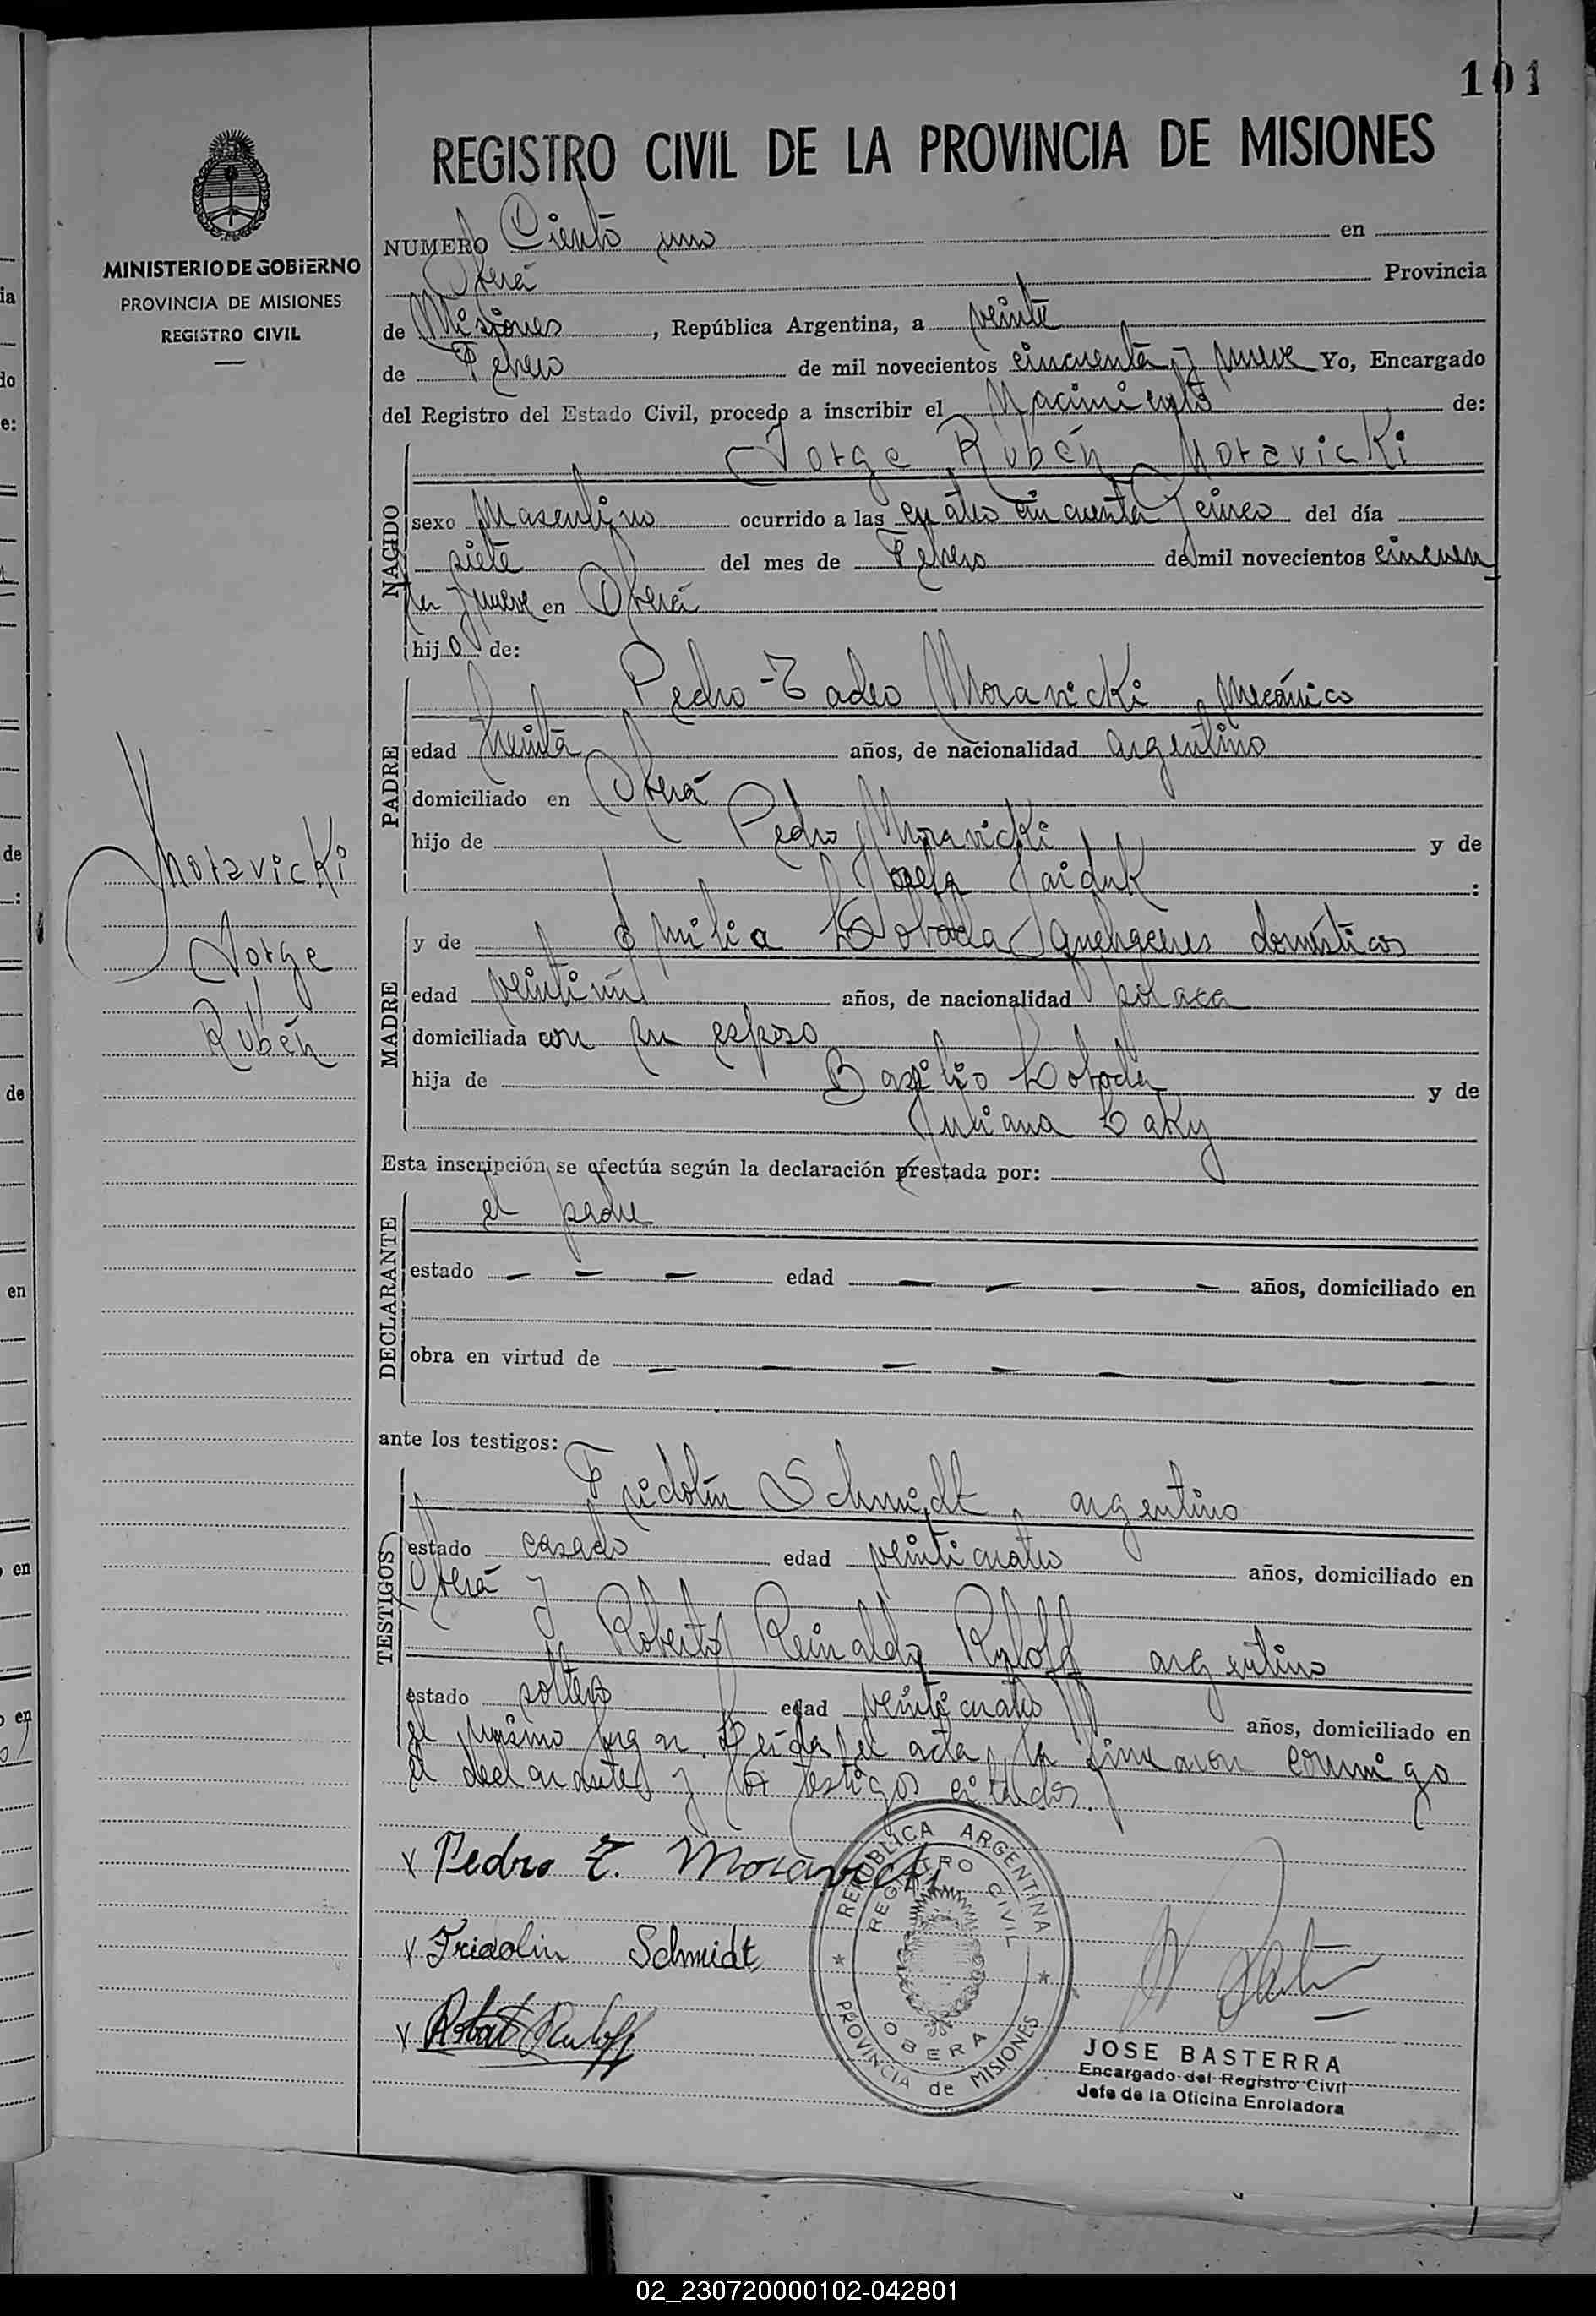 101
REGISTRO CIVIL DE LA PROVINCIA DE MISIONES
MINISTERIO DE GOBIERNO
PROVINCIA DE MISIONES
REGISTRO CIVIL
NUMERO Ciento uno en
Oberá Provincia
de Misiones, República Argentina, a veinte
de Febrero de mil novecientos cincuenta y nueve Yo, Encargado
del Registro del Estado Civil, procedo a inscribir el Nacimiento de:
Jorge Rubén Moravicki
NACIDO
sexo Masculino ocurrido a las cuatro cincuenta y cinco del día
siete del mes de Febrero de mil novecientos cincuen
ta y nueve en Oberá
hijo de:
Pedro Tadeo Moravicki, Mecánico
PADRE
edad treinta años, de nacionalidad argentino
domiciliado en Oberá
hijo de Pedro Moravicki y de
Josefa Jaiduk :
Moravicki
Jorge
Rubén
MADRE
y de Emilia Loboda, quehaceres domésticos
edad veintiún años, de nacionalidad polaca
domiciliada con su esposo
hija de Basilio Loboda y de
Juliana
Esta inscripción se efectúa según la declaración prestada por:
DECLARANTE
el padre
estado - - - edad - - - - años, domiciliado en
obra en virtud de - - - - - - - -
ante los testigos:
TESTIGOS
Fridolin Schmidt, argentino
estado casado edad veinticuatro años, domiciliado en
Oberá y
Roberto Reinaldo Ruloff argentino
estado soltero edad veinticuatro años, domiciliado en
el mismo lugar. Leída el acta, la firmaron conmigo
el declarante y los testigos citados.
x Pedro T. Moravicki
x Fridolin Schmidt
x Robert Ruloff
REPÚBLICA ARGENTINA
REGISTRO CIVIL
OBERA
PROVINCIA de MISIONES
JOSE BASTERRA
Encargado del Registro Civil
Jefe de la Oficina Enroladora
ia
do
e:
de
:
de
en
en
en
02_230720000102-042801